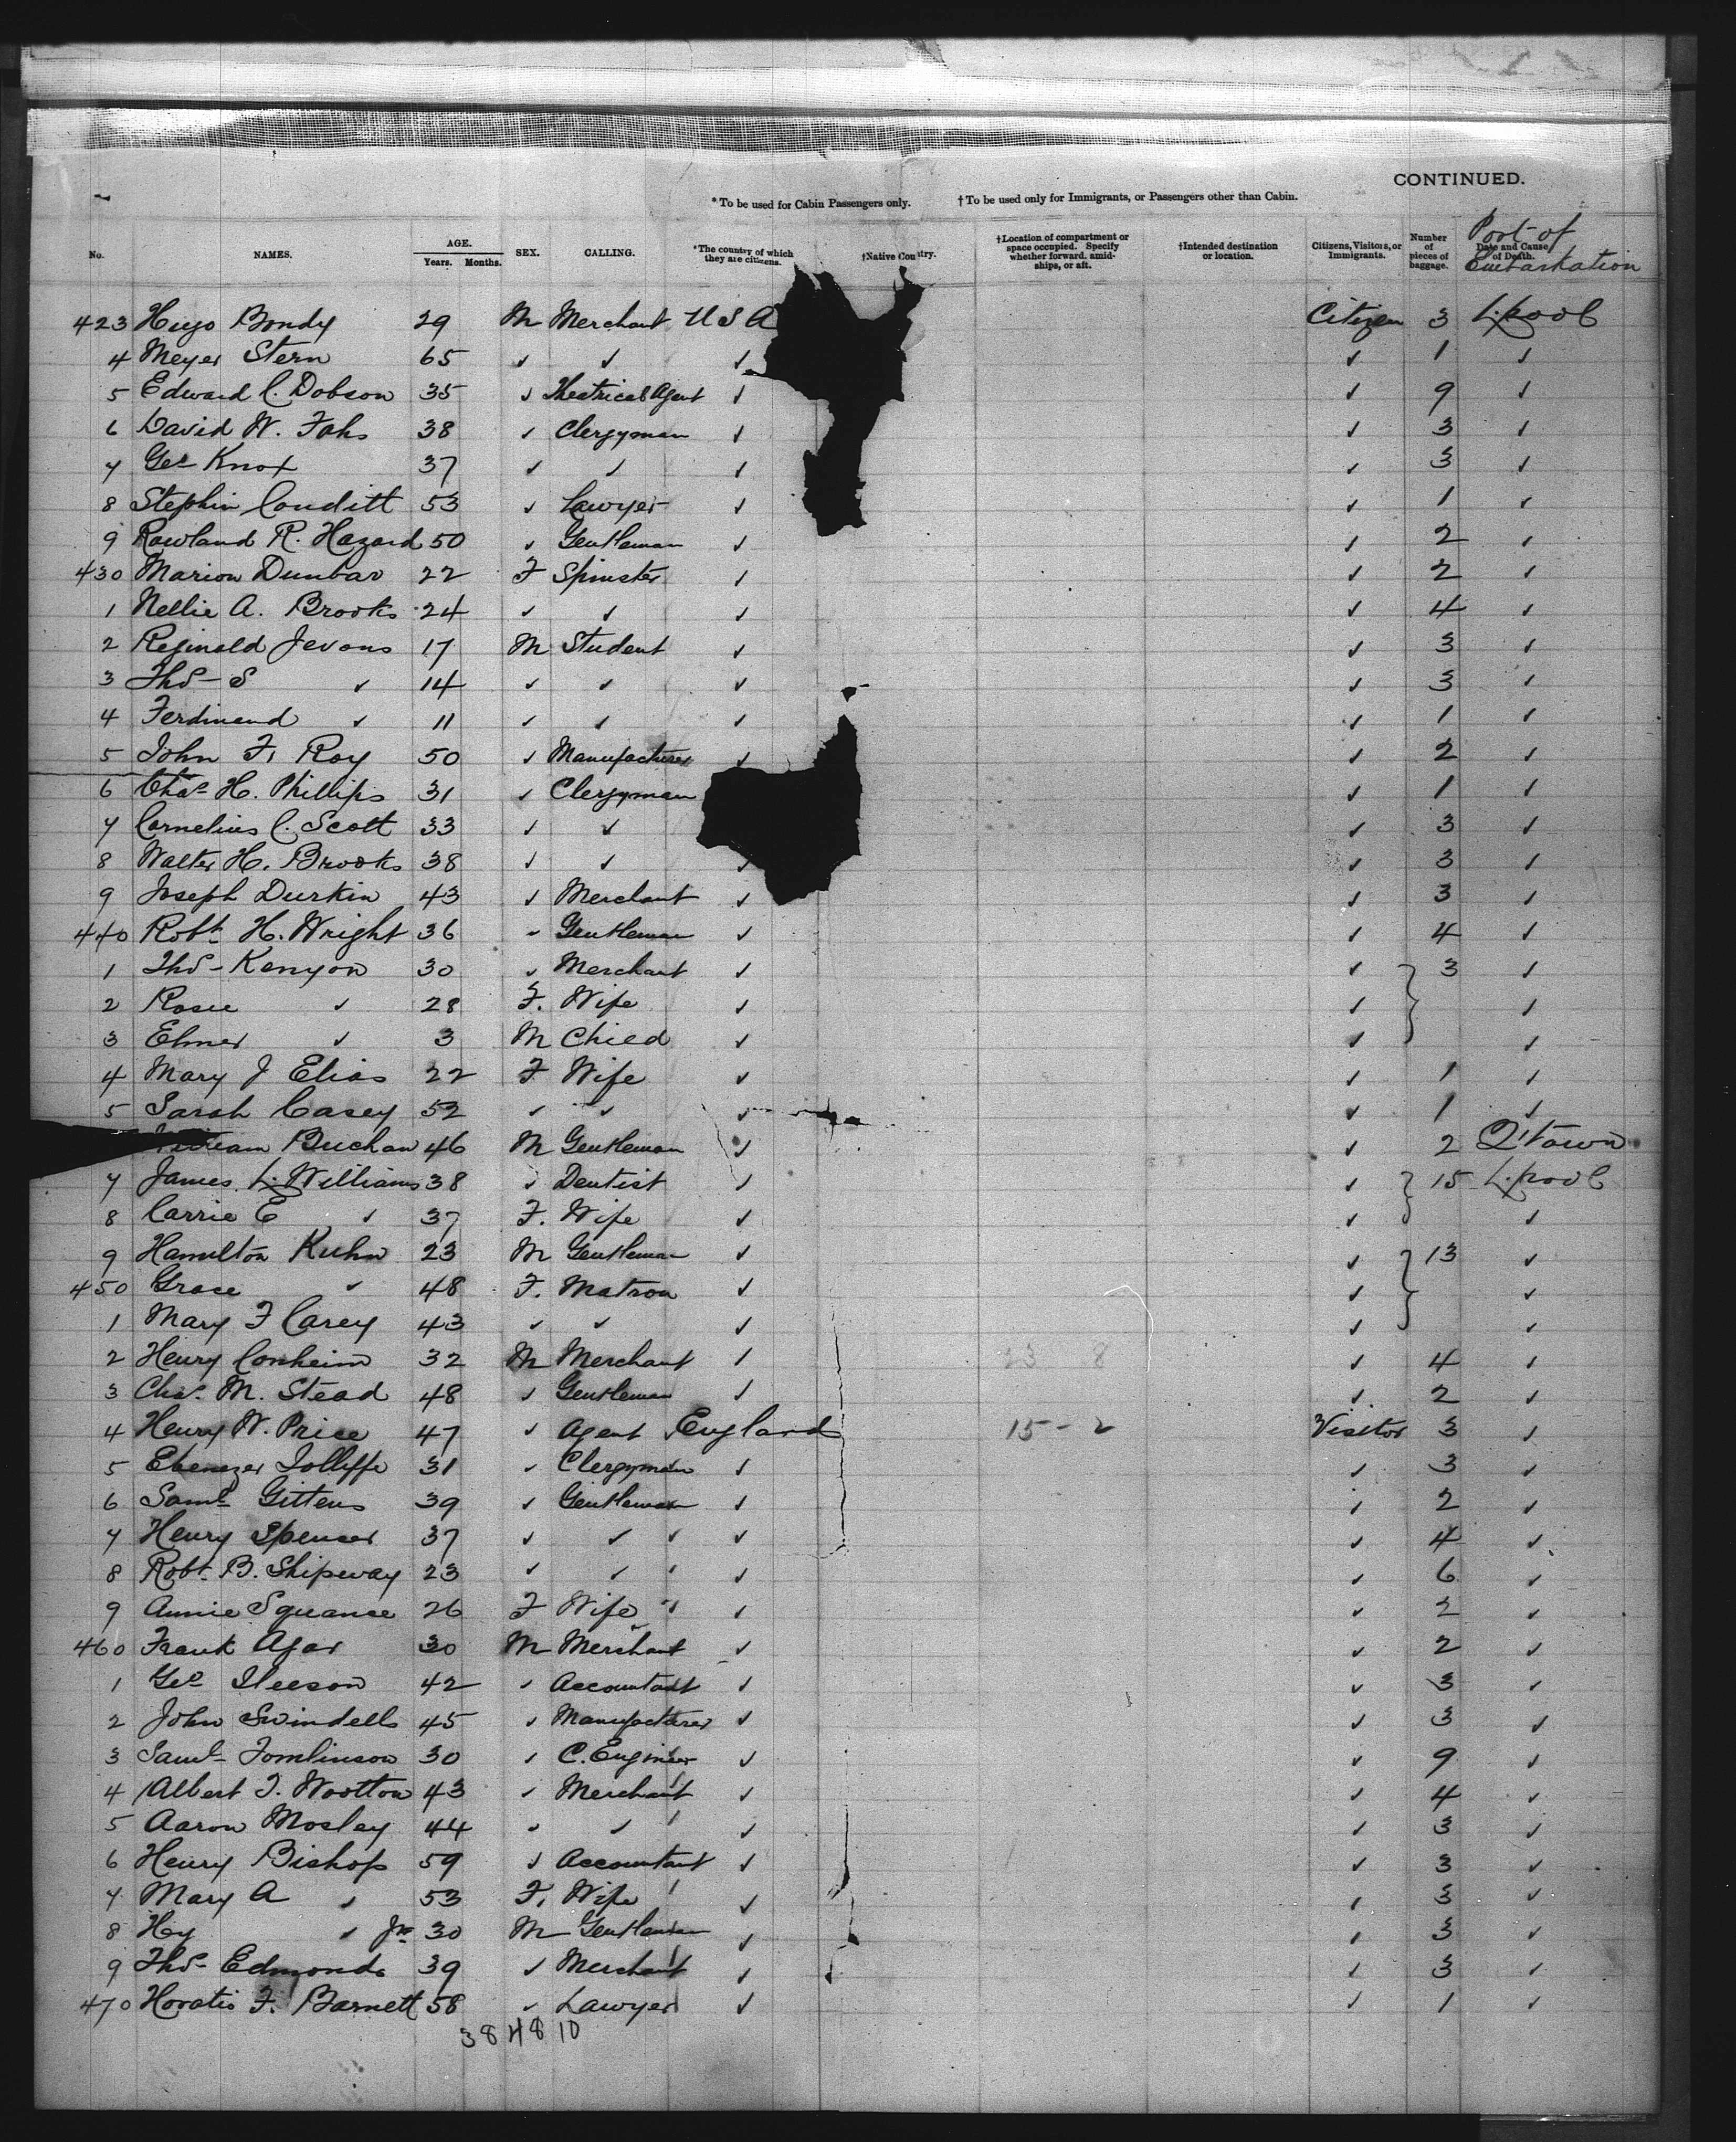 CONTINUED.
*To be used for Cabin Passengers only. †To be used only for Immigrants, or Passengers other than Cabin.
No. NAMES. AGE. Years. Months. SEX. CALLING. *The country of which they are citizens. †Native Country. †Location of compartment or space occupied. Specify whether forward, amidships, or aft. †Intended destination or location. Citizens, Visitors, or Immigrants. Number of pieces of baggage. Date and Cause of Death. Port of Embarkation
423 Hugo Bondy 29 M Merchant U S A Citizen 3 L.pool
4 Meyer Stern 65 ✓ ✓ ✓ ✓ 1 ✓
5 Edward C. Dobson 35 ✓ Theatrical Agent ✓ ✓ 9 ✓
6 David W. Fahs 38 ✓ Clergyman ✓ ✓ 3 ✓
7 Geo Knox 37 ✓ ✓ ✓ ✓ 3 ✓
8 Stephin Conditt 53 ✓ Lawyer ✓ ✓ 1 ✓
9 Rowland R. Hazard 50 ✓ Gentleman ✓ ✓ 2 ✓
430 Marion Dunbar 22 F Spinster ✓ ✓ 2 ✓
1 Nellie A. Brooks 24 ✓ ✓ ✓ ✓ 4 ✓
2 Reginald Jevons 17 M Student ✓ ✓ 3 ✓
3 Thos S ✓ 14 ✓ ✓ ✓ ✓ 3 ✓
4 Ferdinand ✓ 11 ✓ ✓ ✓ ✓ 1 ✓
5 John F. Roy 50 ✓ Manufacturer ✓ ✓ 2 ✓
6 Chas H. Phillips 31 ✓ Clergyman ✓ 1 ✓
7 Cornelius C. Scott 33 ✓ ✓ ✓ 3 ✓
8 Walter H. Brooks 38 ✓ ✓ ✓ ✓ 3 ✓
9 Joseph Durkin 43 ✓ Merchant ✓ ✓ 3 ✓
440 Robt H. Wright 36 ✓ Gentleman ✓ ✓ 4 ✓
1 Thos Kenyon 30 ✓ Merchant ✓ ✓ 3 ✓
2 Rosie ✓ 28 F. Wife ✓ ✓ ✓
3 Elmer ✓ 3 M Child ✓ ✓ ✓
4 Mary J Elias 22 F Wife ✓ ✓ 1 ✓
5 Sarah Casey 52 ✓ ✓ ✓ ✓ 1 ✓
William Buchan 46 M Gentleman ✓ ✓ 2 Q'town
7 James L. Williams 38 ✓ Dentist ✓ ✓ 15 L.pool
8 Carrie E ✓ 37 F. Wife ✓ ✓ ✓
9 Hamilton Kuhn 23 M Gentleman ✓ ✓ 13 ✓
450 Grace ✓ 48 F. Matron ✓ ✓ ✓
1 Mary F Carey 43 ✓ ✓ ✓ ✓ ✓
2 Henry Conheim 32 M Merchant ✓ 23 8 ✓ 4 ✓
3 Chas. M. Stead 48 ✓ Gentleman ✓ ✓ 2 ✓
4 Henry W. Price 47 ✓ Agent England 15 - 2 Visitor 3 ✓
5 Ebenezer Jolliffe 31 ✓ Clergyman ✓ ✓ 3 ✓
6 Saml Gittens 39 ✓ Gentleman ✓ ✓ 2 ✓
7 Henry Spenser 37 ✓ ✓ ✓ ✓ 4 ✓
8 Robt. B. Shipway 23 ✓ ✓ ✓ ✓ 6 ✓
9 Annie Squance 26 F Wife ✓ ✓ 2 ✓
460 Frank Agar 30 M Merchant ✓ ✓ 2 ✓
1 Geo Sleeson 42 ✓ Accountant ✓ ✓ 3 ✓
2 John Swindells 45 ✓ Manufacturer ✓ ✓ 3 ✓
3 Saml Tomlinson 30 ✓ C. Engineer ✓ ✓ 9 ✓
4 Albert T. Wootton 43 ✓ Merchant ✓ ✓ 4 ✓
5 Aaron Mosley 44 ✓ ✓ ✓ ✓ 3 ✓
6 Henry Bishop 59 ✓ Accountant ✓ ✓ 3 ✓
7 Mary A ✓ 53 F. Wife ✓ ✓ 3 ✓
8 Hy ✓ Jr 30 M Gentleman ✓ ✓ 3 ✓
9 Thos Edmonds 39 ✓ Merchant ✓ ✓ 3 ✓
470 Horatio F. Barnett 58 ✓ Lawyer ✓ ✓ 1 ✓
38 48 10